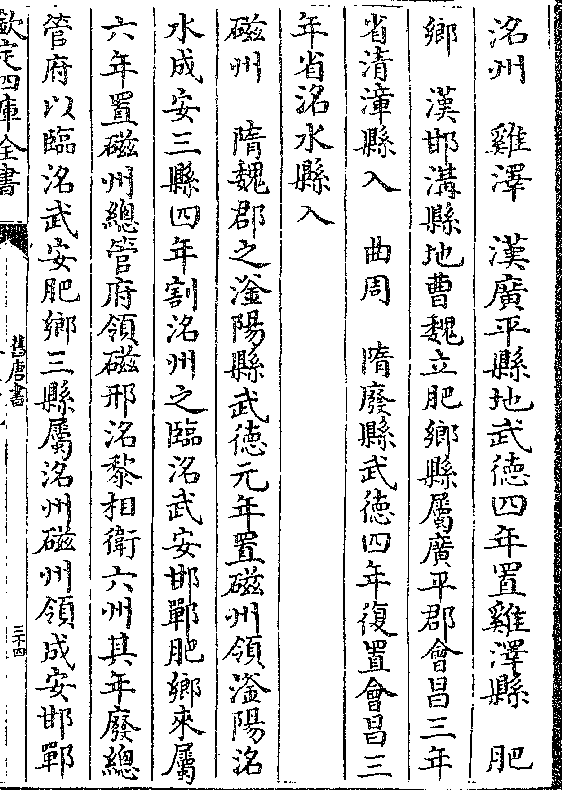 洺州　雞澤　漢廣平縣地武德四年置雞澤縣　肥
鄉　漢邯溝縣地曹魏立肥鄉縣屬廣平郡會昌三年
省清漳縣入　曲周　隋廢縣武德四年復置會昌三
年省洺水縣入
磁州　隋魏郡之滏陽縣武德元年置磁州領滏陽洺
水成安三縣四年割洺州之臨洺武安邯鄲肥鄉來屬
六年置磁州總管府領磁邢洺黎相衛六州其年廢總
管府以臨洺武安肥鄉三縣屬洺州磁州領成安邯鄲
欽定四庫全書
舊唐書
三十四